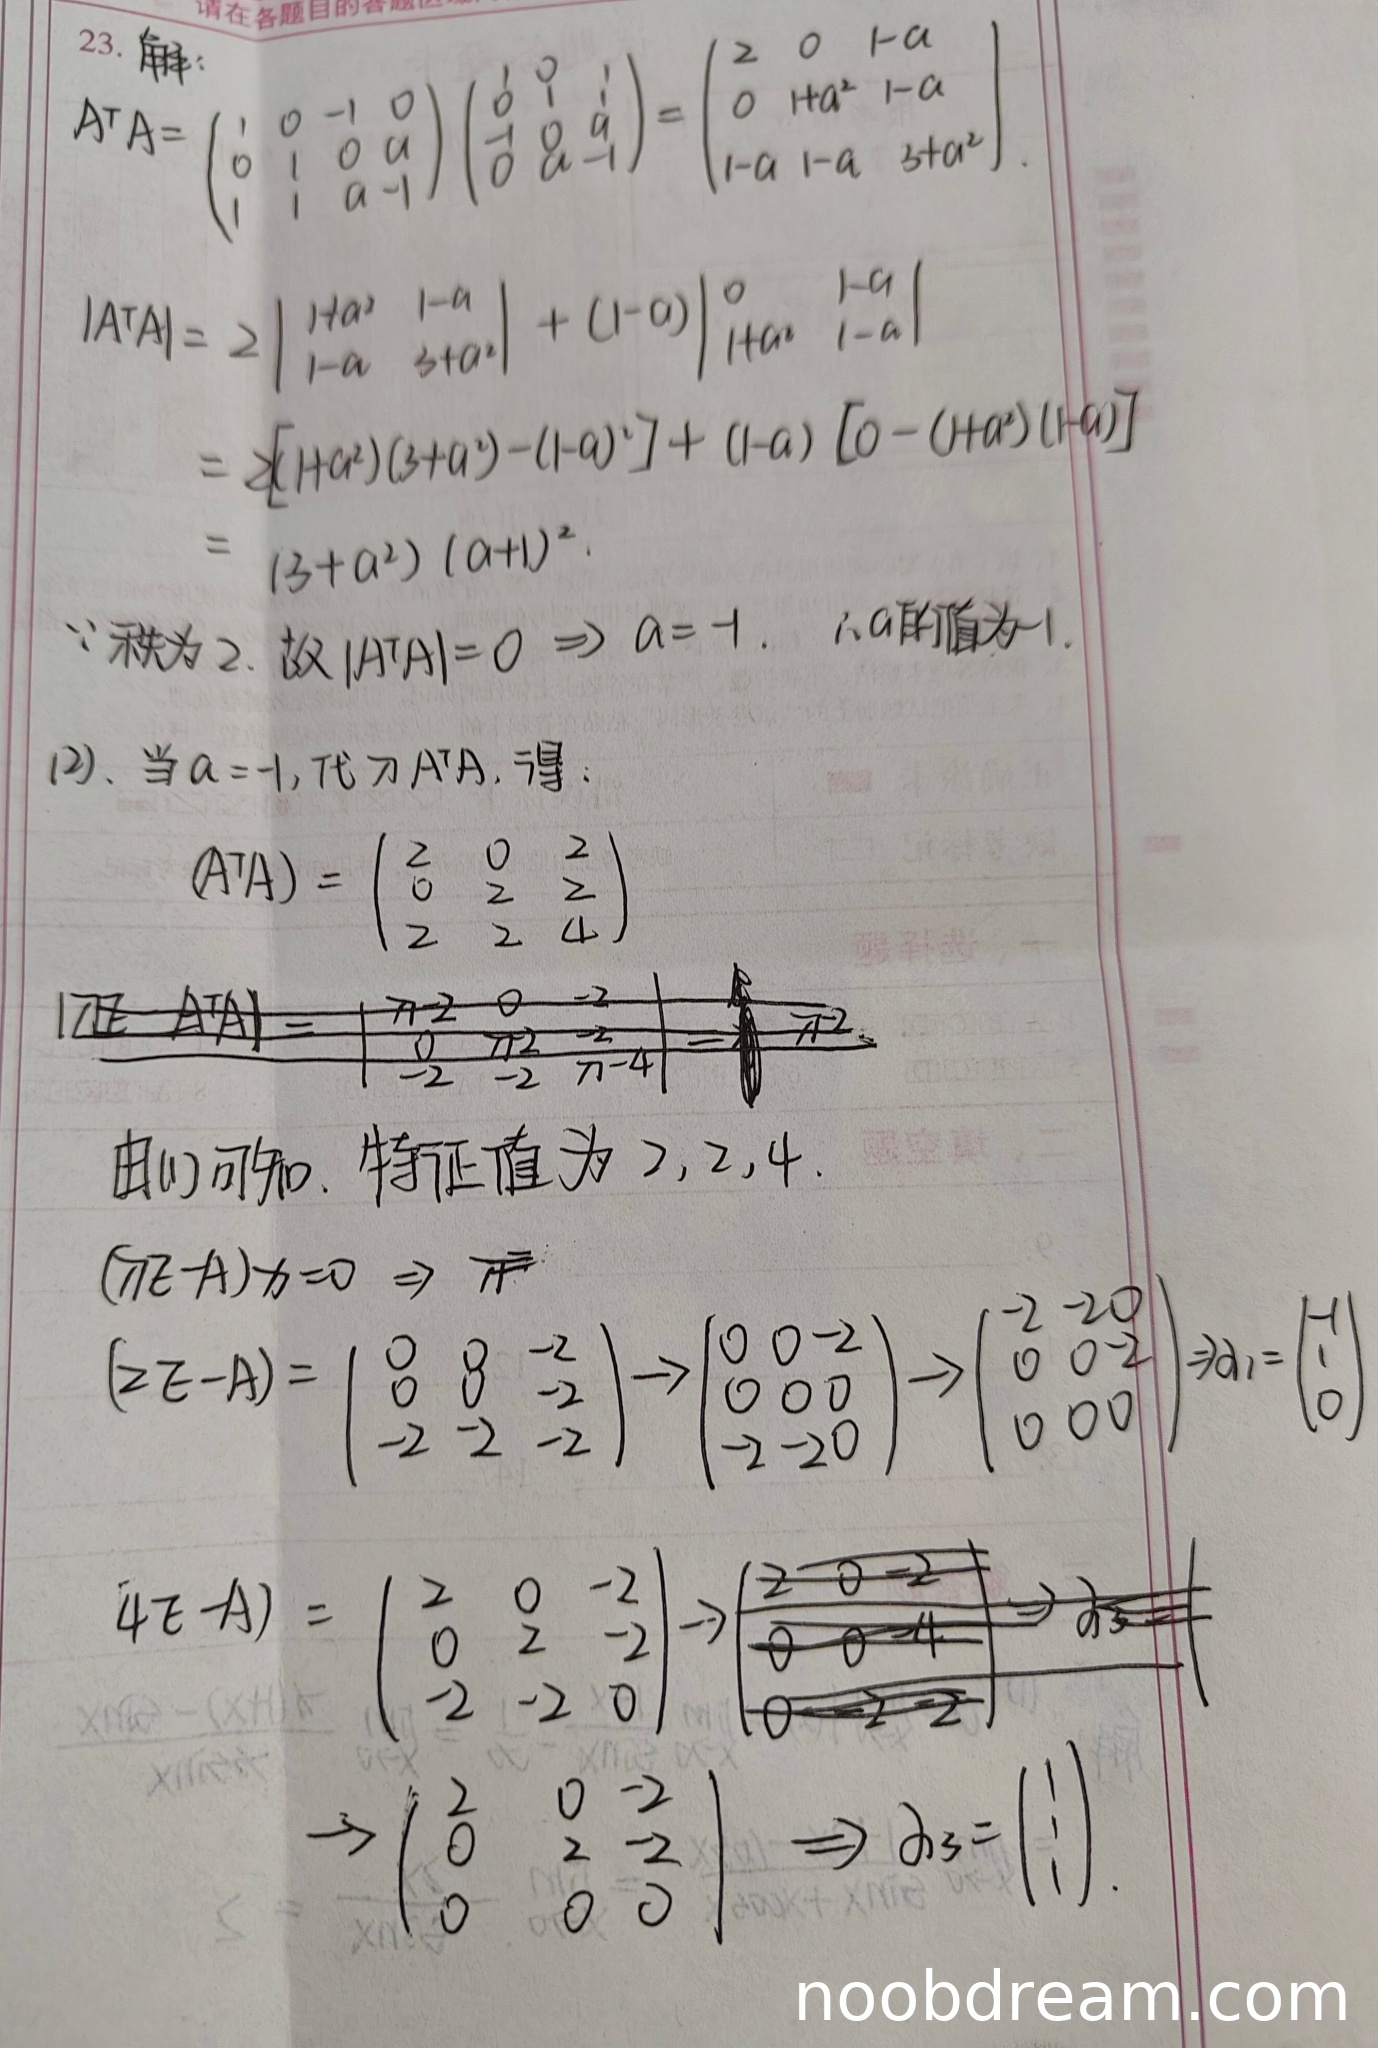 请在各题目的答题区域
23. 解:
AᵀA= (1 0 -1 0; 0 1 0 a; 1 1 a -1) (1 0 1; 0 1 1; -1 0 a; 0 a -1) = (2 0 1-a; 0 1+a² 1-a; 1-a 1-a 3+a²).
|AᵀA| = 2 |1+a² 1-a; 1-a 3+a²| + (1-a) |0 1-a; 1+a² 1-a|
= 2[(1+a²)(3+a²)-(1-a)²] + (1-a) [0-(1+a²)(1-a)]
= (3+a²) (a+1)².
∵ 秩为2. 故|AᵀA|=0 ⇒ a=-1. ∴a的值为-1.
(2). 当a=-1, 代入AᵀA. 得:
(AᵀA) = (2 0 2; 0 2 2; 2 2 4)
|λE AᵀA| = |λ-2 0 -2; 0 λ-2 -2; -2 -2 λ-4| = λ-2
由(1)可知. 特征值为 2, 2, 4.
(λE-A)x=0 ⇒ λ=
(2E-A) = (0 0 -2; 0 0 -2; -2 -2 -2) → (0 0 -2; 0 0 0; -2 -2 0) → (-2 -2 0; 0 0 -2; 0 0 0) ⇒ α₁ = (-1; 1; 0)
(4E-A) = (2 0 -2; 0 2 -2; -2 -2 0) → (2 0 -2; 0 0 -4; 0 -2 -2) ⇒ α₃ =
→ (2 0 -2; 0 2 -2; 0 0 0) ⇒ α₃ = (1; 1; 1).
noobdream.com